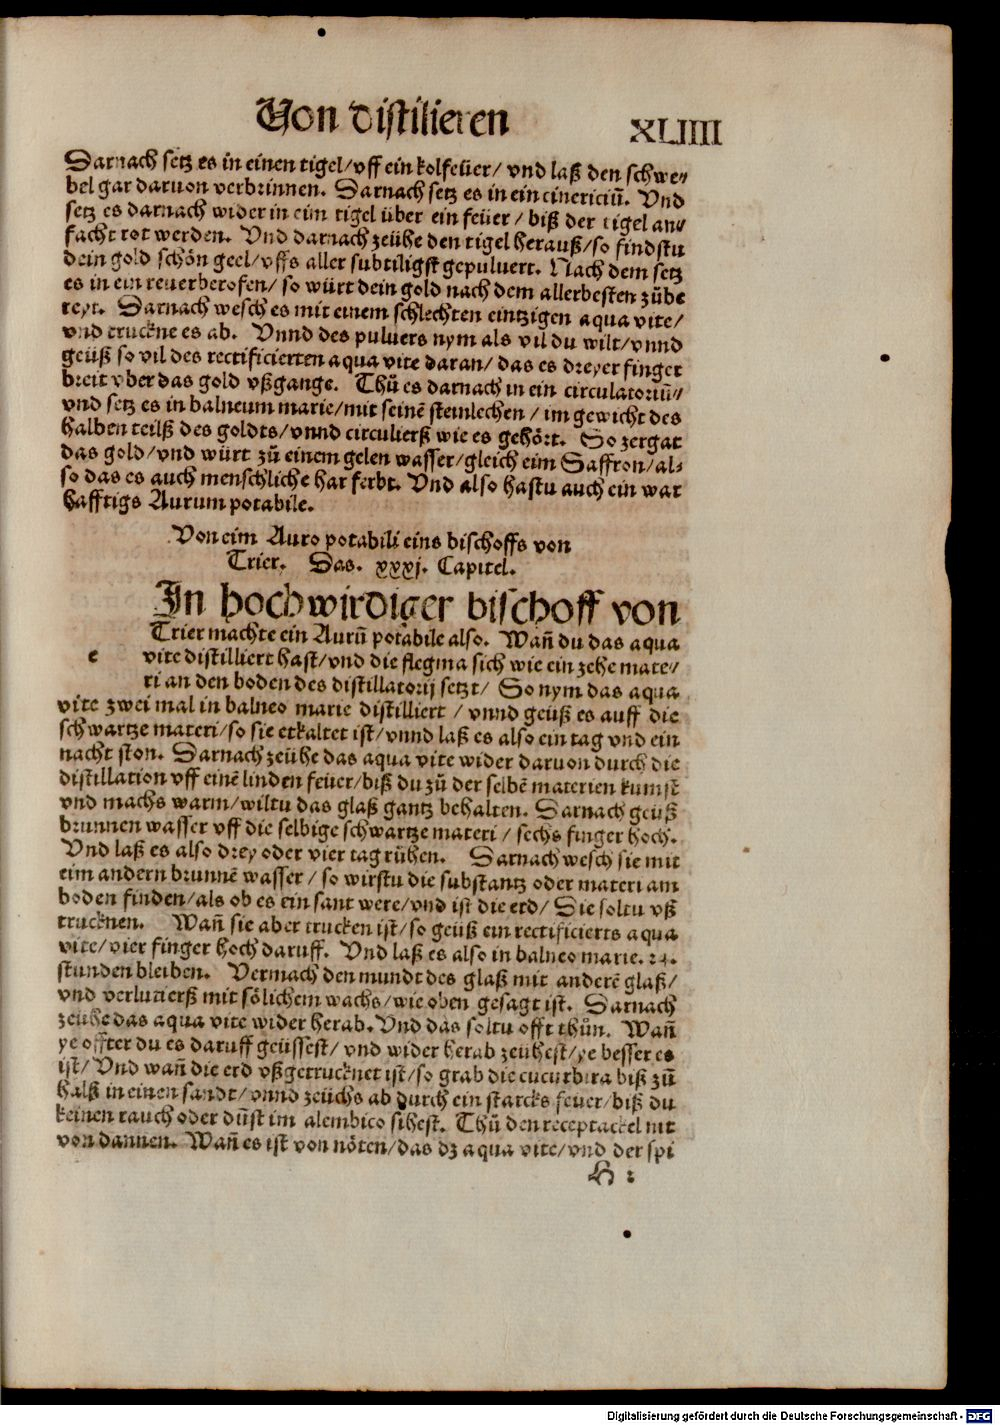 Von distilieren
XLIIII
Darnach setz es in einen tigel/vff ein kolfeüer/ vnd laß den schwe⸗
bel gar daruon verbrinnen. Darnach setz es in ein cinericiū. Vnd
setz es darnach wider in eim tigel über ein feüer/ biß der tigel an⸗
facht rot werden. Vnd darnach zeühe den tigel herauß/so findstu
dein gold schön geel/vffs aller subtiligst gepuluert. Nach dem setz
es in ein reuerberofen/ so würt dein gold nach dem allerbesten zůbe
reyt. Darnach wesch es mit einem schlechten eintzigen aqua vite/
vnd truckne es ab. Vnnd des puluers nym als vil du wilt/vnnd
geüß so vil des rectificierten aqua vite daran/ das es dreyer finger
breit vber das gold vßgange. Thů es darnach in ein circulatoriū/
vnd setz es in balneum marie/mit seinē steinlechen / im gewicht des
halben teilß des goldts/vnnd circulierß wie es gehört. So zergat
das gold/vnd würt zů einem gelen wasser/gleich eim Saffron/al⸗
so das es auch menschliche har ferbt. Vnd also hastu auch ein war
hafftigs Aurum potabile.
Von eim Auro potabili eins bischoffs von
Trier. Das. xxxj. Capitel.
In hochwirdiger bischoff von
Trier machte ein Aurū potabile also. Wañ du das aqua
e vite distilliert hast/vnd die flegma sich wie ein zehe mate⸗
ri an den boden des distillatorij setzt/ So nym das aqua
vite zwei mal in balneo marie distilliert / vnnd geüß es auff die
schwartze materi/so sie erkaltet ist/vnnd laß es also ein tag vnd ein
nacht ston. Darnach zeühe das aqua vite wider daruon durch die
distillation vff einē linden feuer/biß du zů der selbē materien kumst
vnd machs warm/wiltu das glaß gantz behalten. Darnach geüß
brunnen wasser vff die selbige schwartze materi / sechs finger hoch.
Vnd laß es also drey oder vier tag rühen. Darnach wesch sie mit
eim andern brunnē wasser / so wirstu die substantz oder materi am
boden finden/als ob es ein sant were/vnd ist die erd/ Die soltu vß
trucknen. Wañ sie aber trucken ist/so geüß ein rectificierts aqua
vite/vier finger hoch daruff. Vnd laß es also in balneo marie. 24.
stunden bleiben. Vermach den mundt des glaß mit anderē glaß/
vnd verlutierß mit sölichem wachs/wie oben gesagt ist. Darnach
zeühe das aqua vite wider herab. Vnd das soltu offt thůn. Wañ
ye offter du es daruff geüssest/ vnd wider herab zeühest/ye besser es
ist/ Vnd wañ die erd vßgetrucknet ist/so grab die cucurbita biß zů
halß in einen sandt/vnnd zeüchs ab durch ein starcks feuer/biß du
keinen rauch oder dunst im alembico sihest. Thů den receptackel nit
von dannen. Wañ es ist von nöten/das dz aqua vite/vnd der spi
H 2
Digitalisierung gefördert durch die Deutsche Forschungsgemeinschaft - DFG